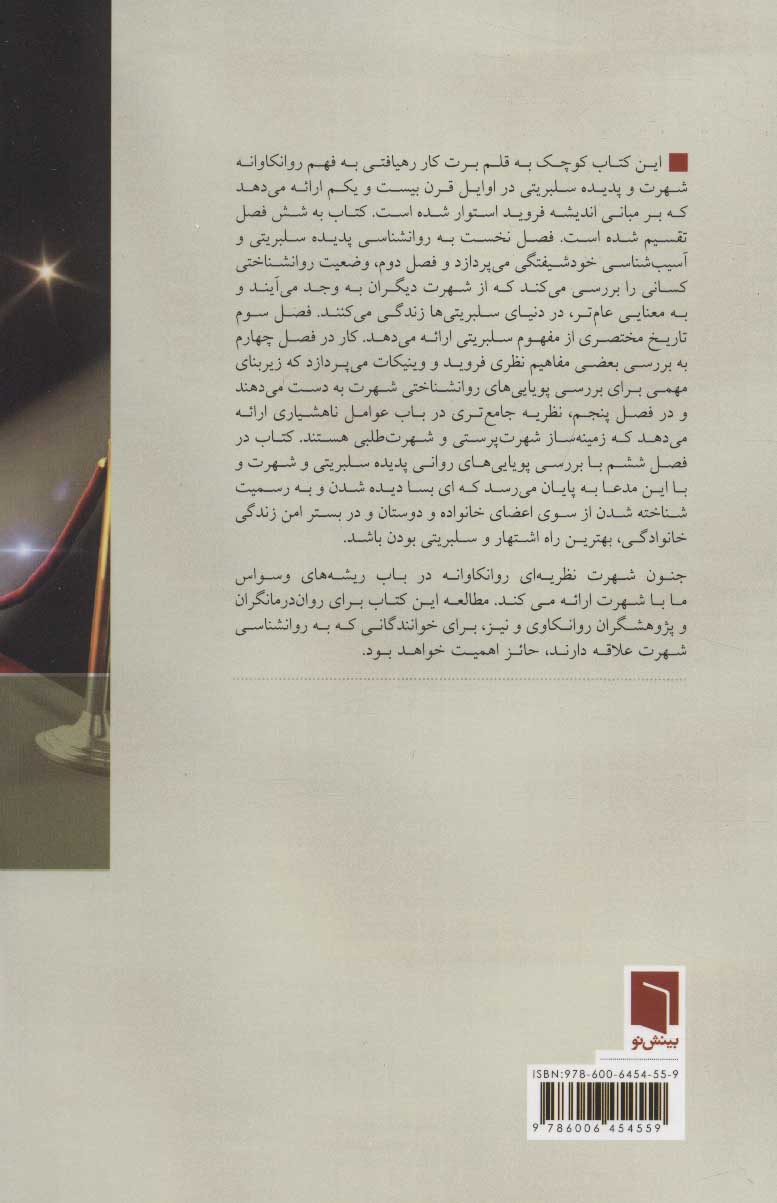 این کتاب کوچک به قلم برت کار رهیافتی به فهم روانکاوانه
شهرت و پدیده سلبریتی در اوایل قرن بیست و یکم ارائه می‌دهد
که بر مبانی اندیشه فروید استوار شده است. کتاب به شش فصل
تقسیم شده است. فصل نخست به روانشناسی پدیده سلبریتی و
آسیب‌شناسی خودشیفتگی می‌پردازد و فصل دوم، وضعیت روانشناختی
کسانی را بررسی می‌کند که از شهرت دیگران به وجد می‌آیند و
به معنایی عام‌تر، در دنیای سلبریتی‌ها زندگی می‌کنند. فصل سوم
تاریخ مختصری از مفهوم سلبریتی ارائه می‌دهد. کار در فصل چهارم
به بررسی بعضی مفاهیم نظری فروید و وینیکات می‌پردازد که زیربنای
مهمی برای بررسی پویایی‌های روانشناختی شهرت به دست می‌دهند
و در فصل پنجم، نظریه جامع‌تری در باب عوامل ناهشیاری ارائه
می‌دهد که زمینه‌ساز شهرت‌پرستی و شهرت‌طلبی هستند. کتاب در
فصل ششم با بررسی پویایی‌های روانی پدیده سلبریتی و شهرت و
با این مدعا به پایان می‌رسد که ای بسا دیده شدن و به رسمیت
شناخته شدن از سوی اعضای خانواده و دوستان و در بستر امن زندگی
خانوادگی، بهترین راه اشتهار و سلبریتی بودن باشد.
جنون شهرت نظریه‌ای روانکاوانه در باب ریشه‌های وسواس
ما با شهرت ارائه می کند. مطالعه این کتاب برای روان‌درمانگران
و پژوهشگران روانکاوی و نیز، برای خوانندگانی که به روانشناسی
شهرت علاقه دارند، حائز اهمیت خواهد بود.
بینش‌نو
ISBN:978-600-6454-55-9
9 786006 454559